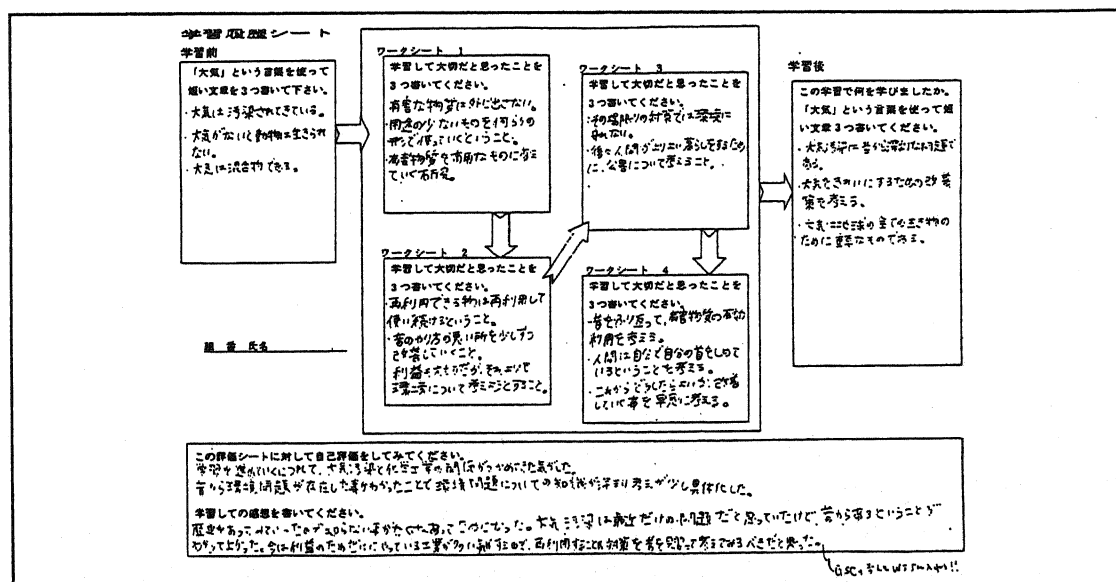 学習履歴シート
学習前
「大気」という言葉を使って
短い文章を3つ書いて下さい。
・大気は汚染されてきている。
・大気がないと動物は生きられ
ない。
・大気は混合物である。
組 番 氏名
ワークシート 1
学習して大切だと思ったことを
3つ書いてください。
有害な物質は外に出さない。
・用途の少ないものを何らかの
形で使っていくということ。
・有害物質を有用なものに変え
ていく研究。
ワークシート 2
学習して大切だと思ったことを
3つ書いてください。
・再利用できる物は再利用して
使い続けるということ。
・昔のやり方の悪い所を少しずつ
改善していくこと。
利益も大切だが、それより
環境について考えること。
ワークシート 3
学習して大切だと思ったことを
3つ書いてください。
・その場限りの対策では環境に
良くない。
・後々人間がより良い暮らしをするため
に、公害について考えること。
ワークシート 4
学習して大切だと思ったことを
3つ書いてください。
・昔をふり返って、有害物質の有効
利用を考える。
・人間は自分で自分の首をしめて
いるということを考える。
・これからどうしたらよいか、改善
していく事を早急に考える。
学習後
この学習で何を学びましたか。
「大気」という言葉を使って短
い文章3つ書いてください。
・大気汚染は昔から深刻な問題で
ある。
・大気をきれいにするための改善
策を考える。
・大気は地球の全ての生き物の
ために重要なものである。
この評価シートに対して自己評価をしてみてください。
学習を進めていくにつれて、大気汚染と化学工業の関係がつかめてきた気がした。
昔から環境問題が存在した事がわかったことで環境問題についての知識が深まり考えが少し具体化した。
学習しての感想を書いてください。
大気汚染は最近だけの問題だと思っていたけど、昔からあるということが
わかってよかった。今は利益のためだけにやっている工業が多い
再利用することの対策を昔を見習って考えてみるべきだと思った。